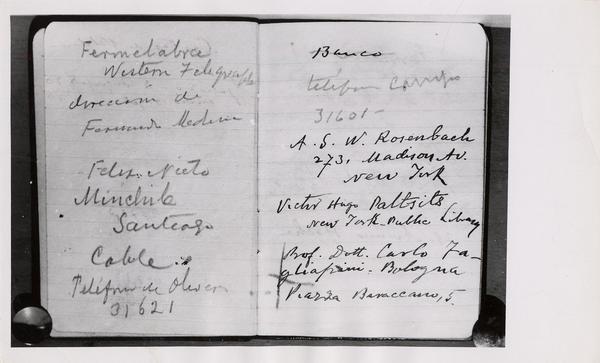 Fermelabre
Western Telegraph
dirección de
Fernando Medina
Felix Nieto
Minchile
Santiago
Cable
Teléfono de Oliver
31621
Banco
teléfono Campo
31601-
A. S. W. Rosenbach
273, Madison Av.
New York
Victor Hugo Paltsits
New York Public Library
Prof. Dott. Carlo Fa-
gliapini. Bologna
Piazza Baraccano, 5.